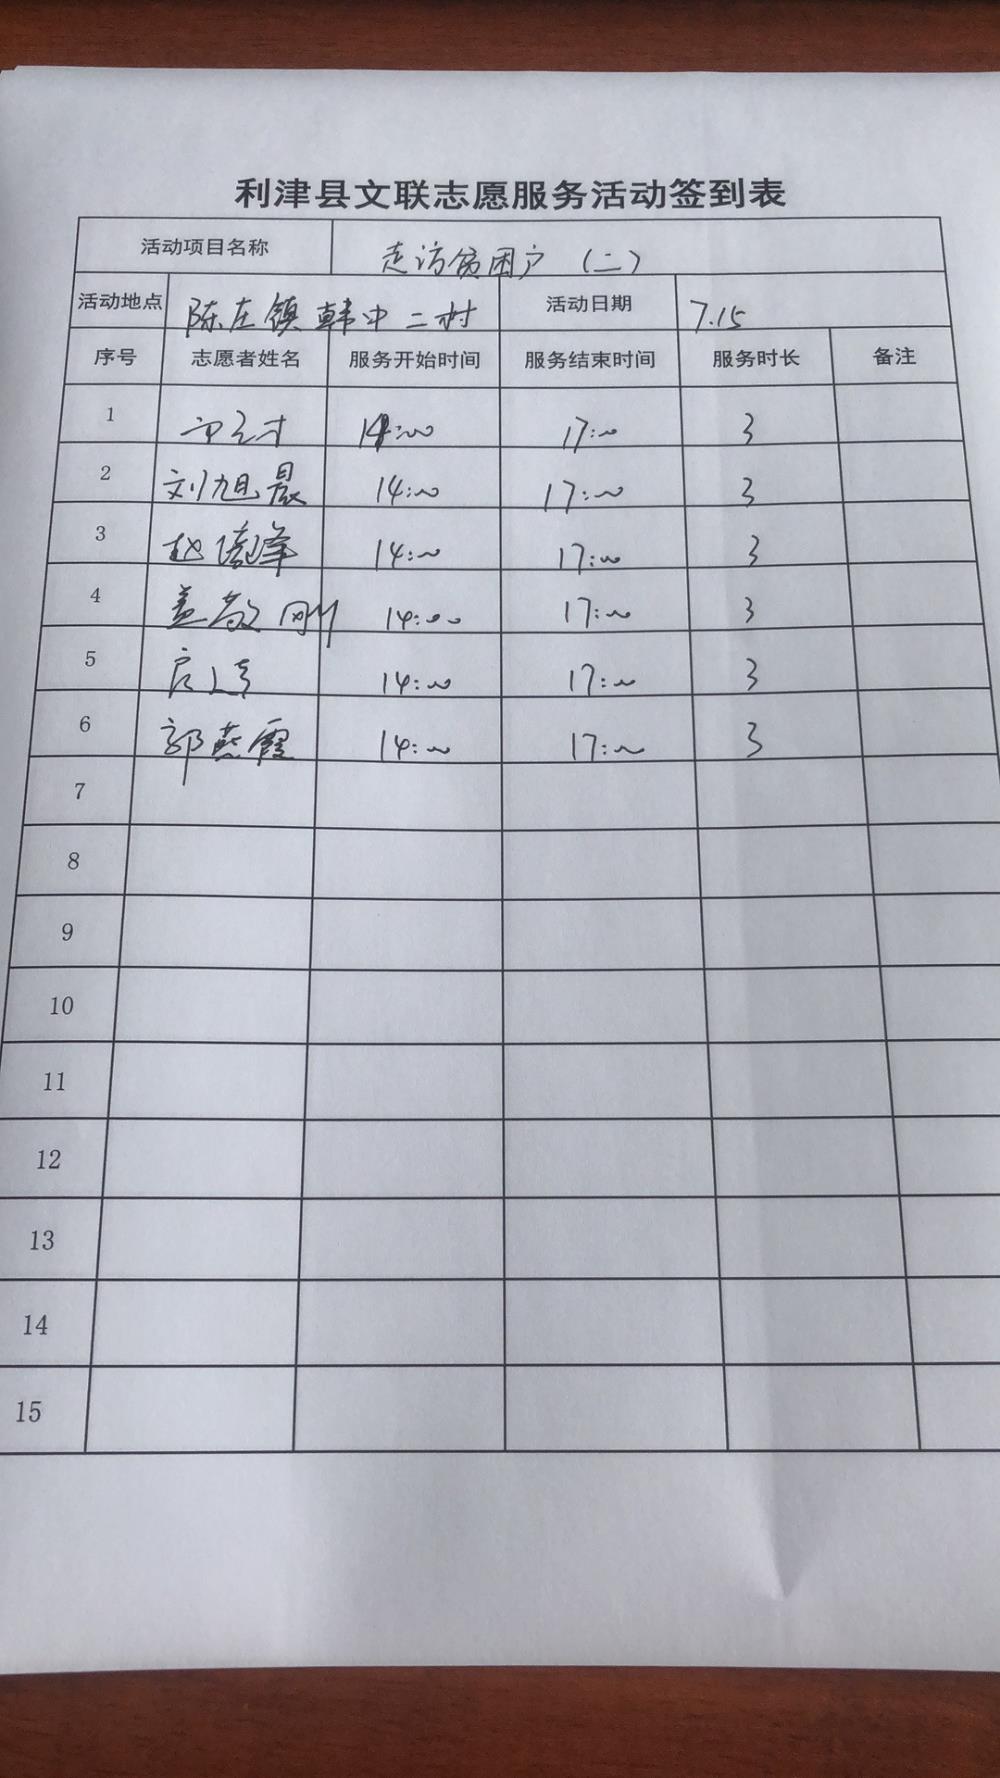 利津县文联志愿服务活动签到表
活动项目名称 走访贫困户（二）
活动地点 陈庄镇韩中二村 活动日期 7.15
序号 志愿者姓名 服务开始时间 服务结束时间 服务时长 备注
1 14:00 17:00 3
2 刘旭晨 14:00 17:00 3
3 14:00 17:00 3
4 盖敬刚 14:00 17:00 3
5 14:00 17:00 3
6 郭燕霞 14:00 17:00 3
7
8
9
10
11
12
13
14
15